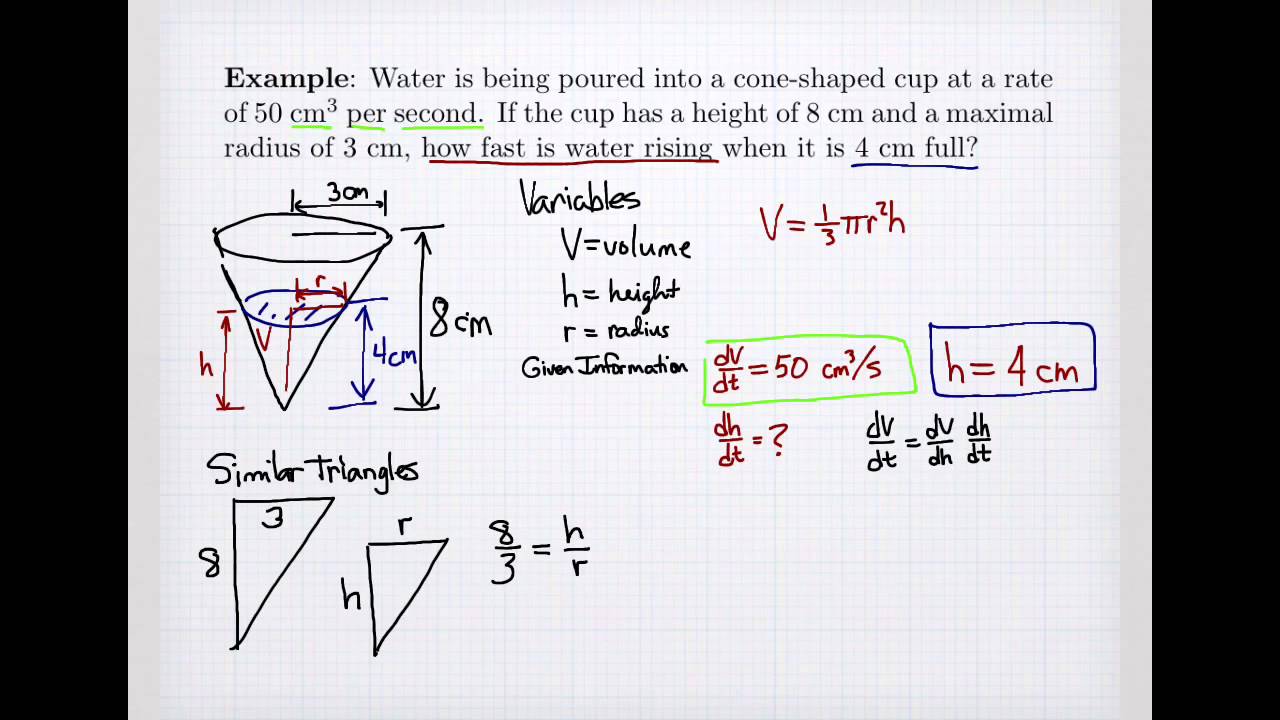 Example: Water is being poured into a cone-shaped cup at a rate
of 50 cm³ per second. If the cup has a height of 8 cm and a maximal
radius of 3 cm, how fast is water rising when it is 4 cm full?
3cm
r
V
h
4cm
8cm
Variables
V=volume
h=height
r=radius
V=⅓πr²h
Given Information
dV/dt = 50 cm³/s
h=4cm
dh/dt = ?
dV/dt = dV/dh dh/dt
Similar Triangles
3
8
r
h
8/3 = h/r